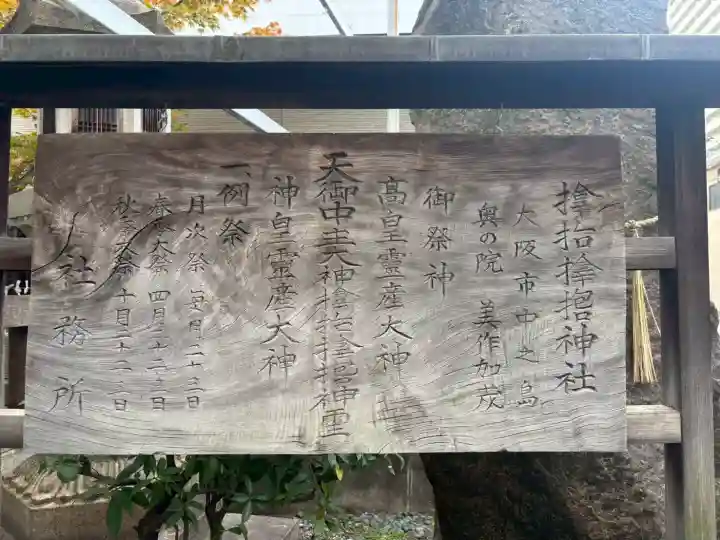 大阪市中之島
奥の院 美作加茂
御祭神
高皇霊産大神
天御中主大神
神皇霊産大神
一、例祭
月次祭 毎月二十三日
春季大祭 四月二十二、三日
秋季大祭 十月二十二、三日
社務所